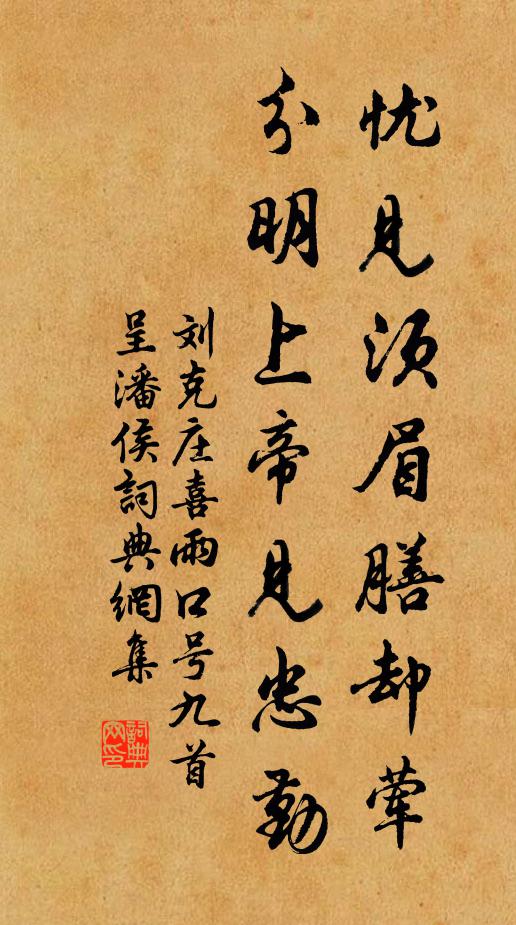 忧见须眉膳却荤
分明上帝见忠勤
刘克庄喜雨口号九首
呈潘侯詞典網集
詞典网印